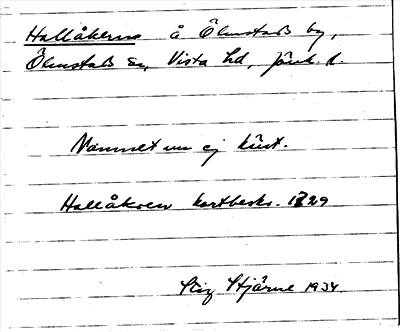 Hallåkerna å Ölmstads by,
Ölmstads sn, Vista hd, Jönk. l.
Namnet nu ej känt.
Hallåkren kartbeskr. 1829
Stig Stjärne 1934.